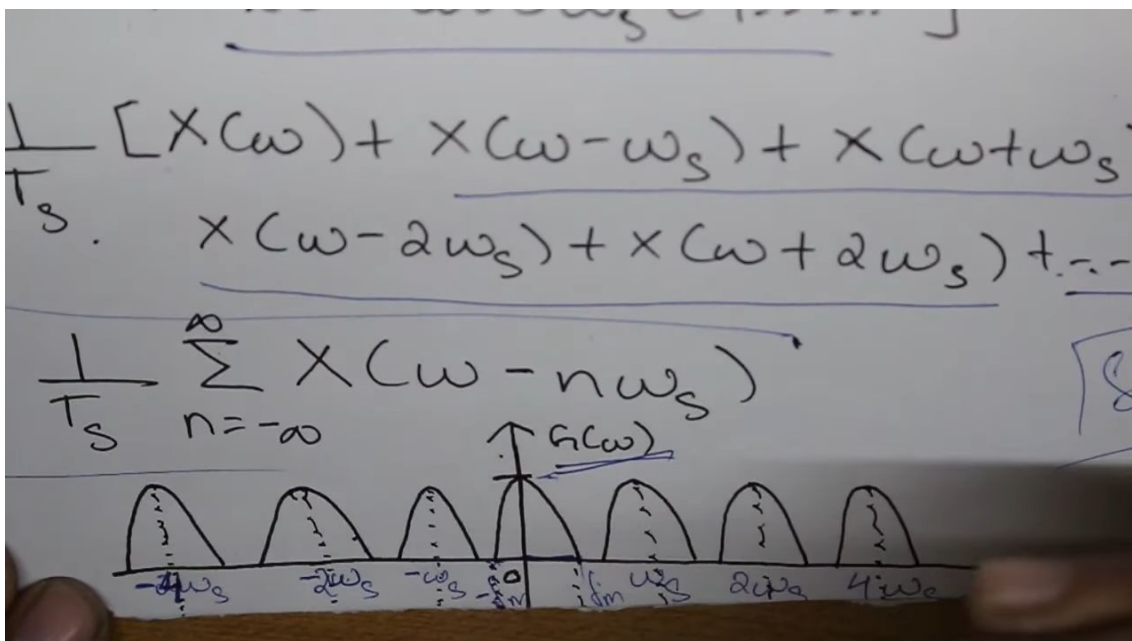 1/Ts [X(ω) + X(ω-ωs) + X(ω+ωs)
X(ω-2ωs) + X(ω+2ωs) + ---
1/Ts ∞Σn=-∞ X(ω-nωs)
G(ω)
-4ωs -2ωs -ωs -fm 0 fm ωs 2ωs 4ωs